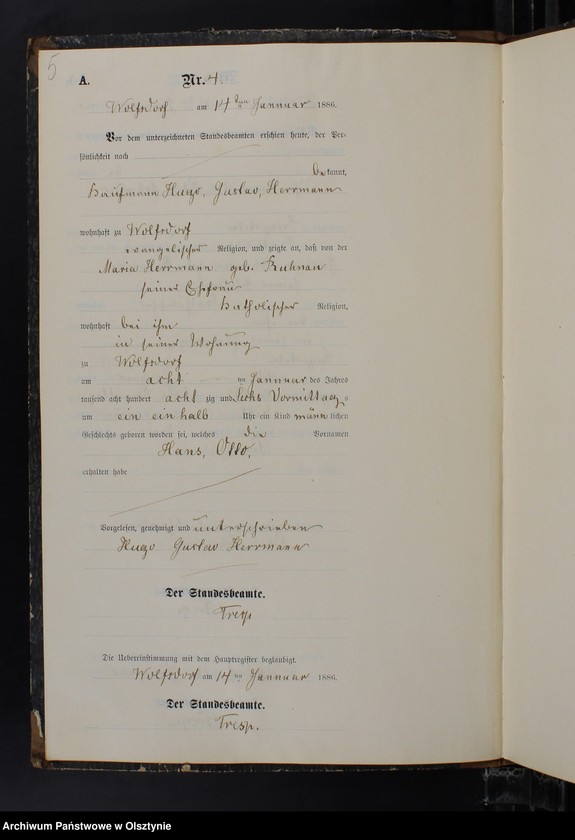 5
A. Nr. 4.
Wolfsdorf am 14ten Jannuar 1886.
Vor dem unterzeichneten Standesbeamten erschien heute, der Per-
sönlichkeit nach
bekannt,
Kaufmann Hugo, Gustav, Herrmann
wohnhaft zu Wolfsdorf
evangelischer Religion, und zeigte an, daß von der
Maria Herrmann geb. Ruhnau
seiner Ehefrau
katholischer Religion,
wohnhaft bei ihm
in seiner Wohnung
zu Wolfsdorf
am acht ten Jannuar des Jahres
tausend acht hundert acht zig und sechs Vormittags
um ein einhalb Uhr ein Kind männlichen
Geschlechts geboren worden sei, welches die Vornamen
Hans, Otto,
erhalten habe
Vorgelesen, genehmigt und unterschrieben
Hugo Gustav Herrmann
Der Standesbeamte.
Tresp
Die Uebereinstimmung mit dem Hauptregister beglaubigt.
Wolfsdorf am 14ten Jannuar 1886.
Der Standesbeamte.
Tresp.
Archiwum Państwowe w Olsztynie